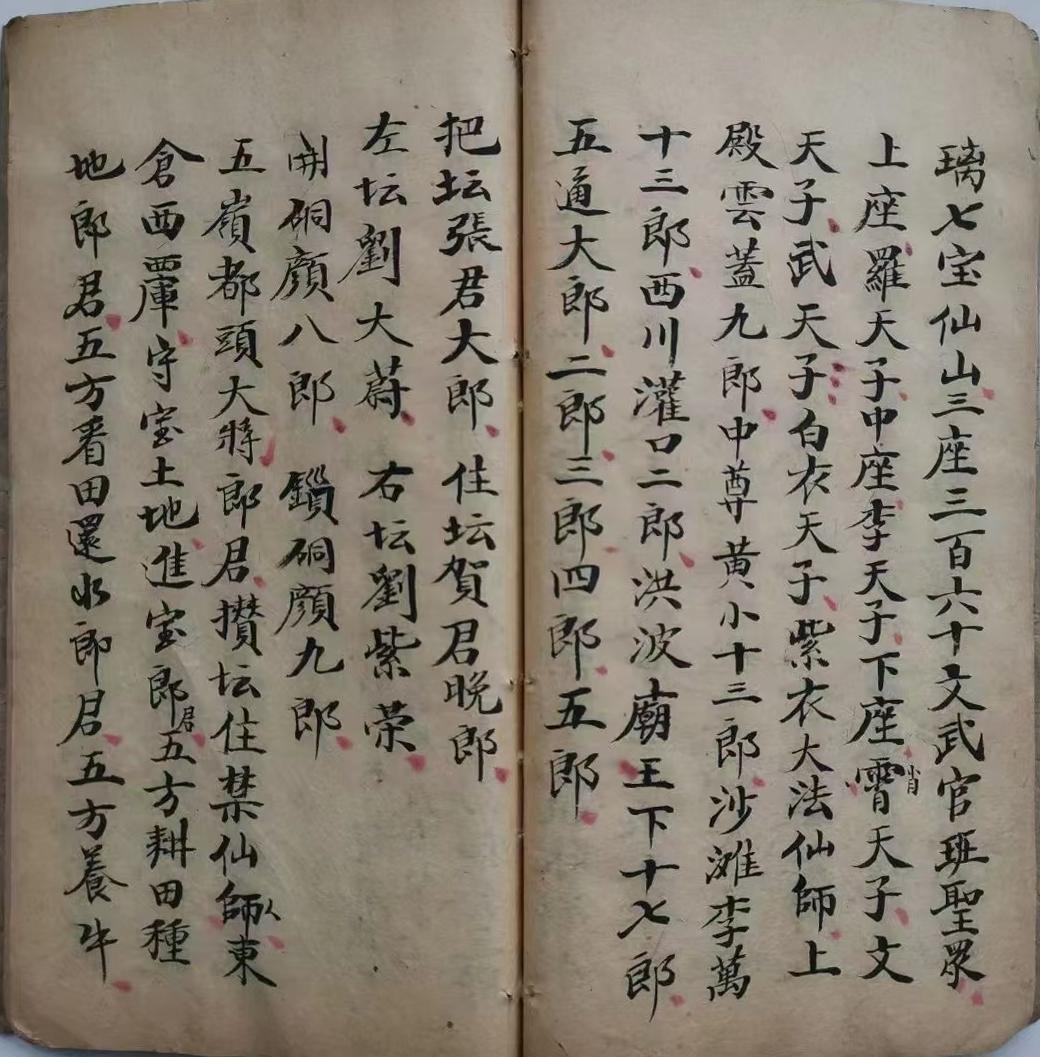 璃七宝仙山三座三百六十文武官班聖眾
上座羅天子中座李天子下座霄肖天子文
天子武天子白衣天子紫衣大法仙師上
殿雲蓋九郎中尊黄小十三郎沙滩李萬
十三郎西川灌口二郎洪波廟王下十七郎
五通大郎二郎三郎四郎五郎
把坛張君大郎住坛賀君晚郎
左坛劉大蔚右坛劉紫荣
開硐顏八郎鎖硐顏九郎
五嶺都頭大將郎君攅坛住禁仙師東
倉西庫守宝土地進宝郎君五方耕田種
地郎君五方看田還水郎君五方養牛